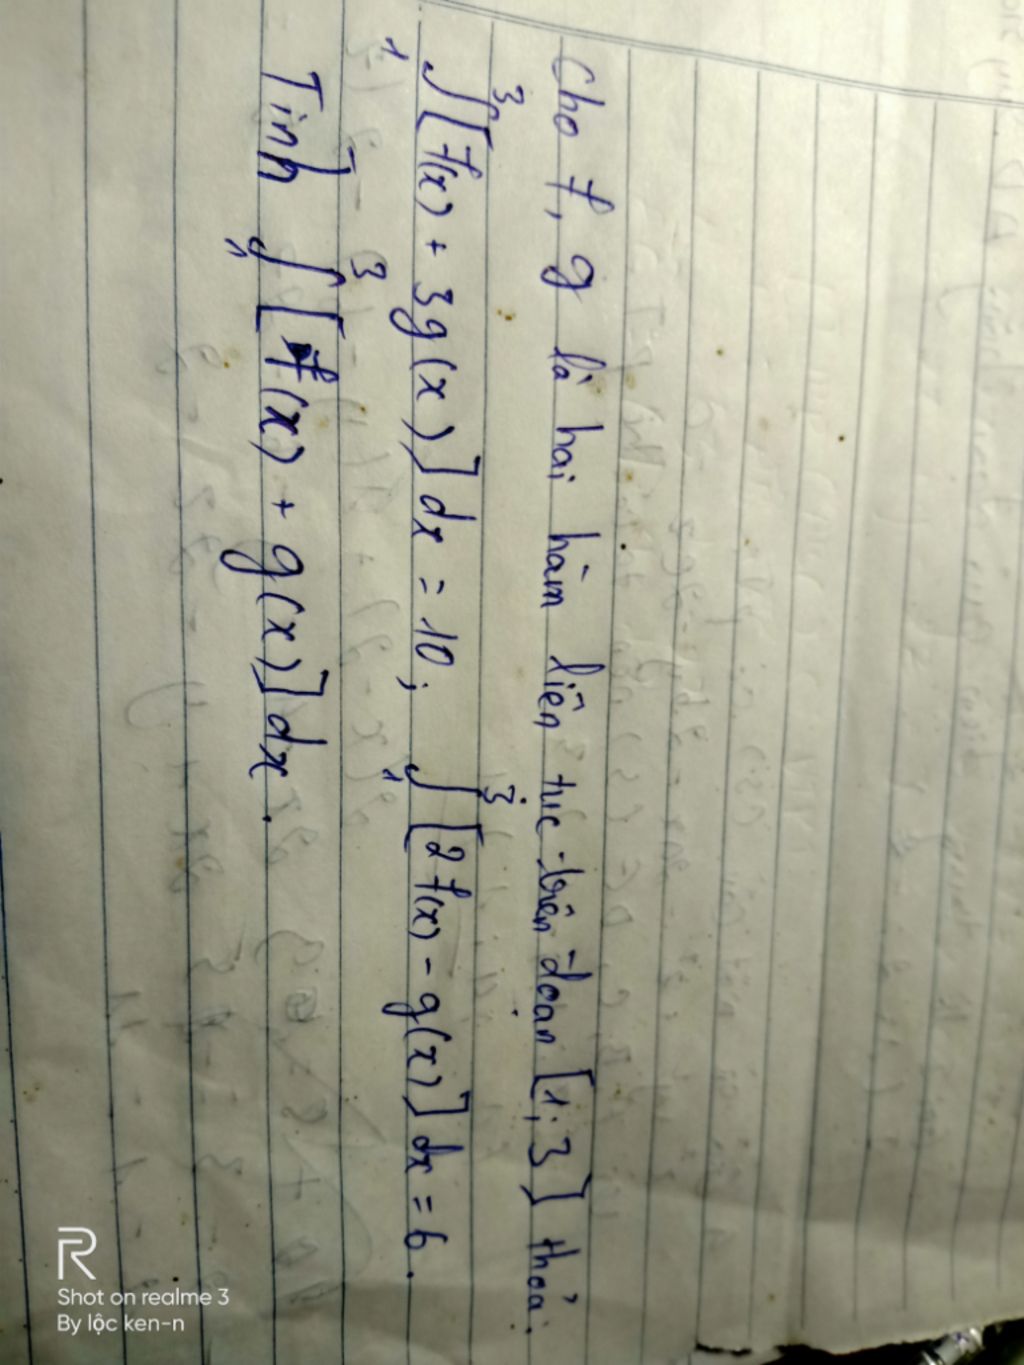 Cho f, g là hai hàm liên tục trên đoạn [1; 3] thỏa:
∫₁³ [f(x) + 3g(x)] dx = 10; ∫₁³ [2f(x) - g(x)] dx = 6.
Tính ∫₁³ [f(x) + g(x)] dx.
Shot on realme 3
By lộc ken-n